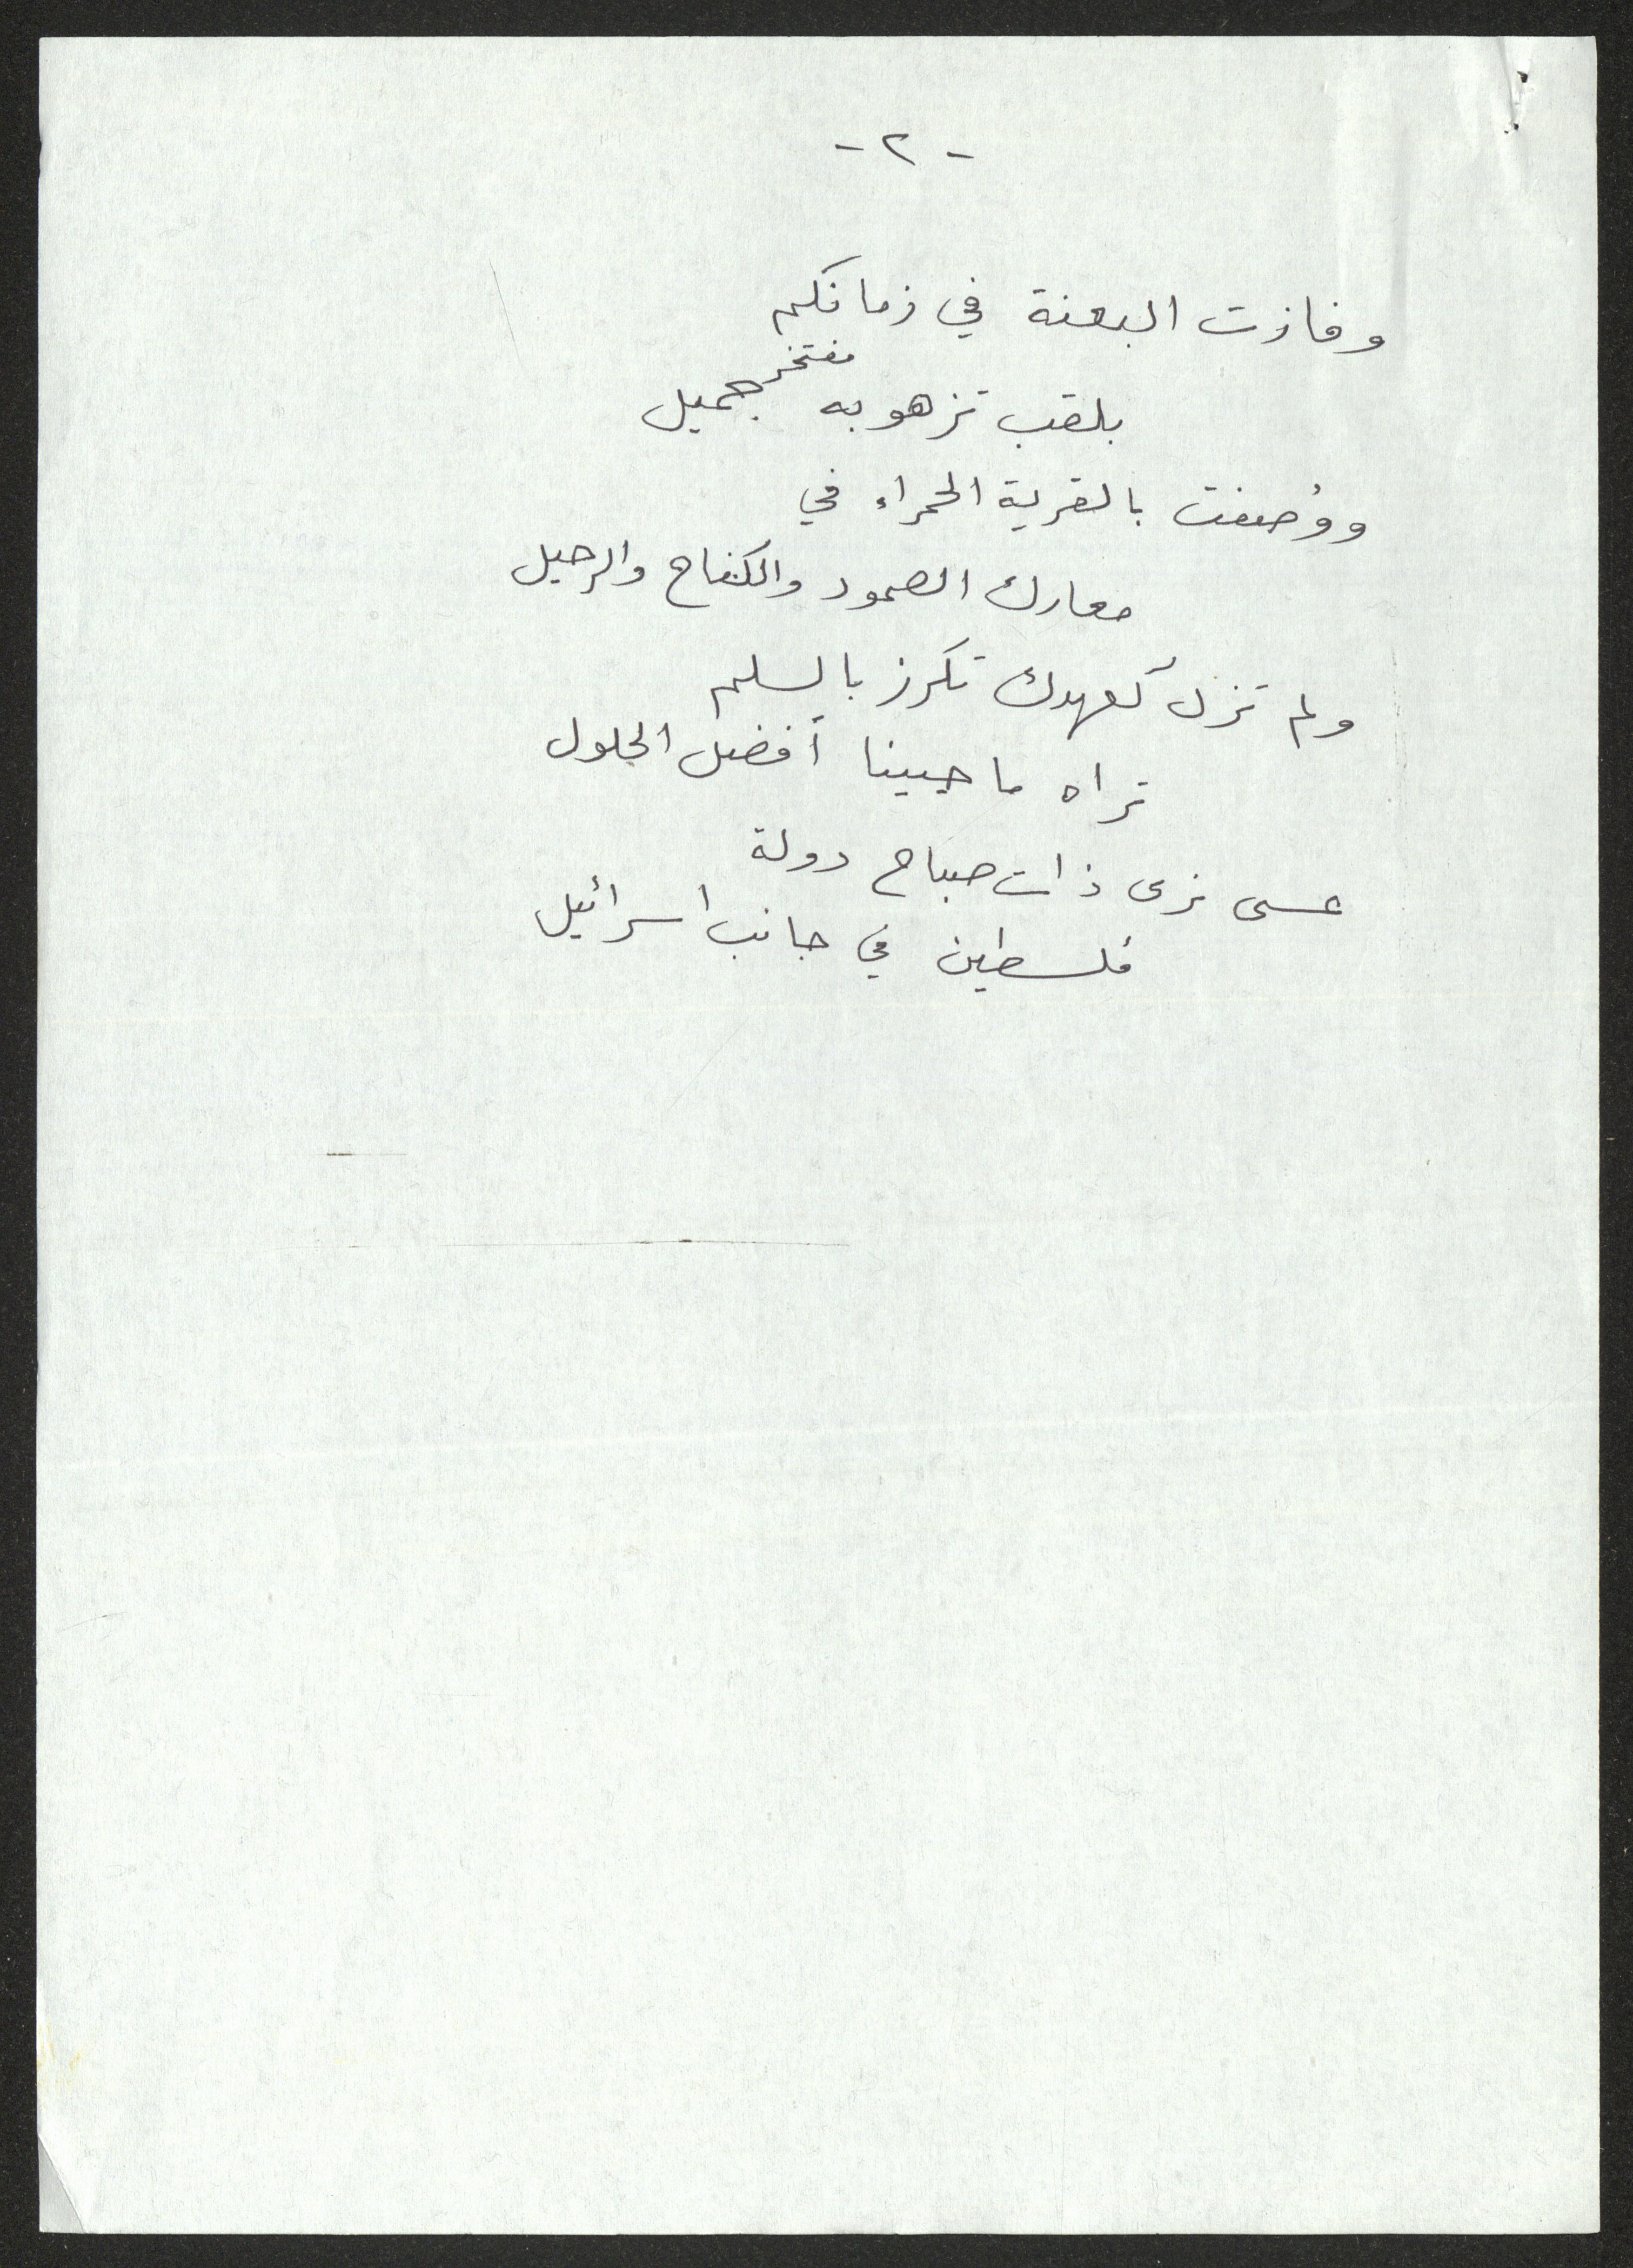 - ٢ -
وفازت البعنة في زمانكم
بلقب تزهو به مفتخر جميل
ووُصفت بالقرية الحمراء في
معارك الصمود والكفاح والرحيل
ولم تزل كعهدك تكرز بالسلم
تراه ما حيينا أفضل الحلول
عسى نرى ذات صباح دولة
فلسطين في جانب اسرائيل